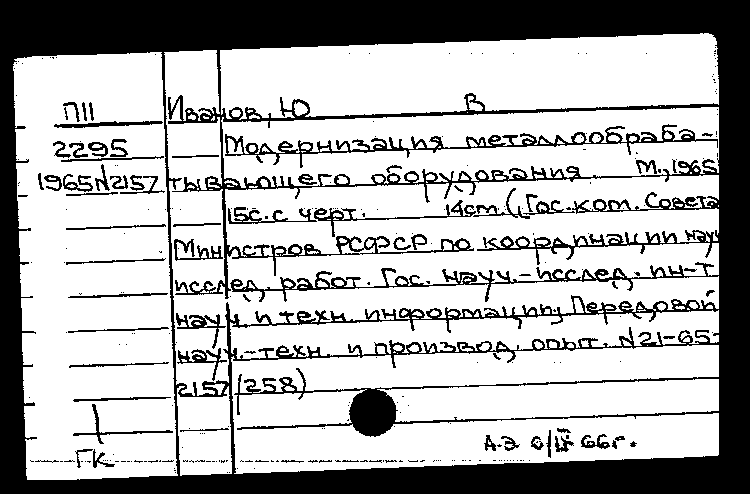 ПII Иванов, Ю В
2295 Модернизация металлообраба-
1965N2157 тывающего оборудования. М., 1965
15с. с черт. 14cm. (Гос. ком. Совета
Министров РСФСР по координации науч
исслед. работ. Гос. науч.-исслед. ин-т
науч. и техн. информации; Передовой
науч.-техн. и производ. опыт. N21-65-
2157/258)
ГК
66г.